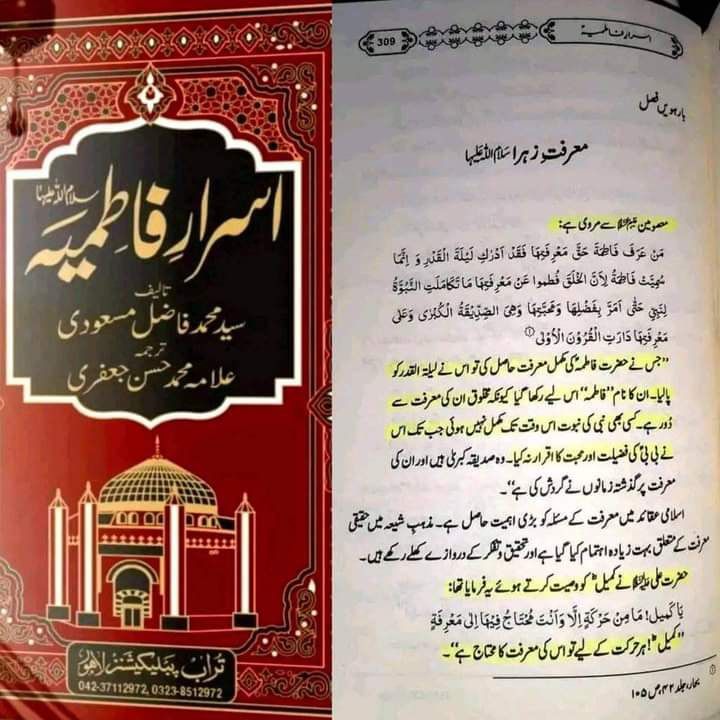 اسرارِ فاطمیہ
سلام اللہ علیہا
تالیف
سید محمد فاضل مسعودی
ترجمہ
علامہ محمد حسن جعفری
تراب پبلیکیشنز لاہور
042-37112972, 0323-8512972
309
اسرار فاطمیہ
بارہویں فصل
معرفتِ زہرا سلام اللہ علیہا
معصومین علیہم السلام سے مروی ہے:
مَنْ عَرَفَ فَاطِمَةَ حَقَّ مَعْرِفَتِهَا فَقَدْ اَدْرَكَ لَيْلَةَ الْقَدْرِ وَ اِنَّمَا
سُمِّيَتْ فَاطِمَةُ لِاَنَّ الْخَلْقَ فُطِمُوا عَنْ مَعْرِفَتِهَا مَا تَكَامَلَتِ النُّبُوَّةُ
لِنَبِيٍّ حَتّٰى اَقَرَّ بِفَضْلِهَا وَمَحَبَّتِهَا وَهِيَ الصِّدِّيْقَةُ الْكُبْرٰى وَعَلٰى
مَعْرِفَتِهَا دَارَتِ الْقُرُوْنُ الْاُوْلٰى ①
”جس نے حضرت فاطمہؑ کی مکمل معرفت حاصل کی تو اس نے لیلۃ القدر کو
پالیا۔ ان کا نام ”فاطمہ“ اس لیے رکھا گیا کیونکہ مخلوق ان کی معرفت سے
دُور ہے۔ کسی بھی نبی کی نبوت اس وقت تک مکمل نہیں ہوئی جب تک اس
نے بی بیؑ کی فضیلت اور محبت کا اقرار نہ کیا۔ وہ صدیقہ کبریٰ ہیں اور ان کی
معرفت پر گذشتہ زمانوں نے گردش کی ہے“۔
اسلامی عقائد میں معرفت کے مسئلہ کو بڑی اہمیت حاصل ہے۔ مذہبِ شیعہ میں حقیقی
معرفت کے متعلق بہت زیادہ اہتمام کیا گیا ہے اور تحقیق و تفکر کے دروازے کھلے رکھے ہیں۔
حضرت علی علیہ السلام نے کمیلؓ کو وصیت کرتے ہوئے یہ فرمایا تھا:
يَا كُمَيْلُ! مَا مِنْ حَرَكَةٍ اِلَّا وَاَنْتَ مُحْتَاجٌ فِيْهَا اِلٰى مَعْرِفَةٍ
”کمیلؓ! ہر حرکت کے لیے تو اس کی معرفت کا محتاج ہے“۔
① بحار، جلد ۴۲، ص ۱۰۵